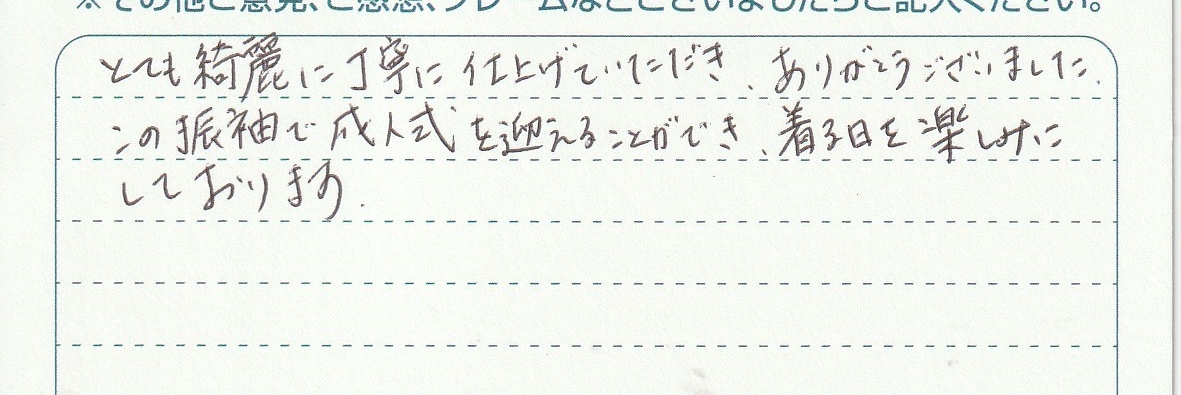 ※その他ご意見、ご感想、クレームなどございましたらご記入ください。
とても綺麗に丁寧に仕上げていただき、ありがとうございました。
この振袖で成人式を迎えることができ、着る日を楽しみに
しております。